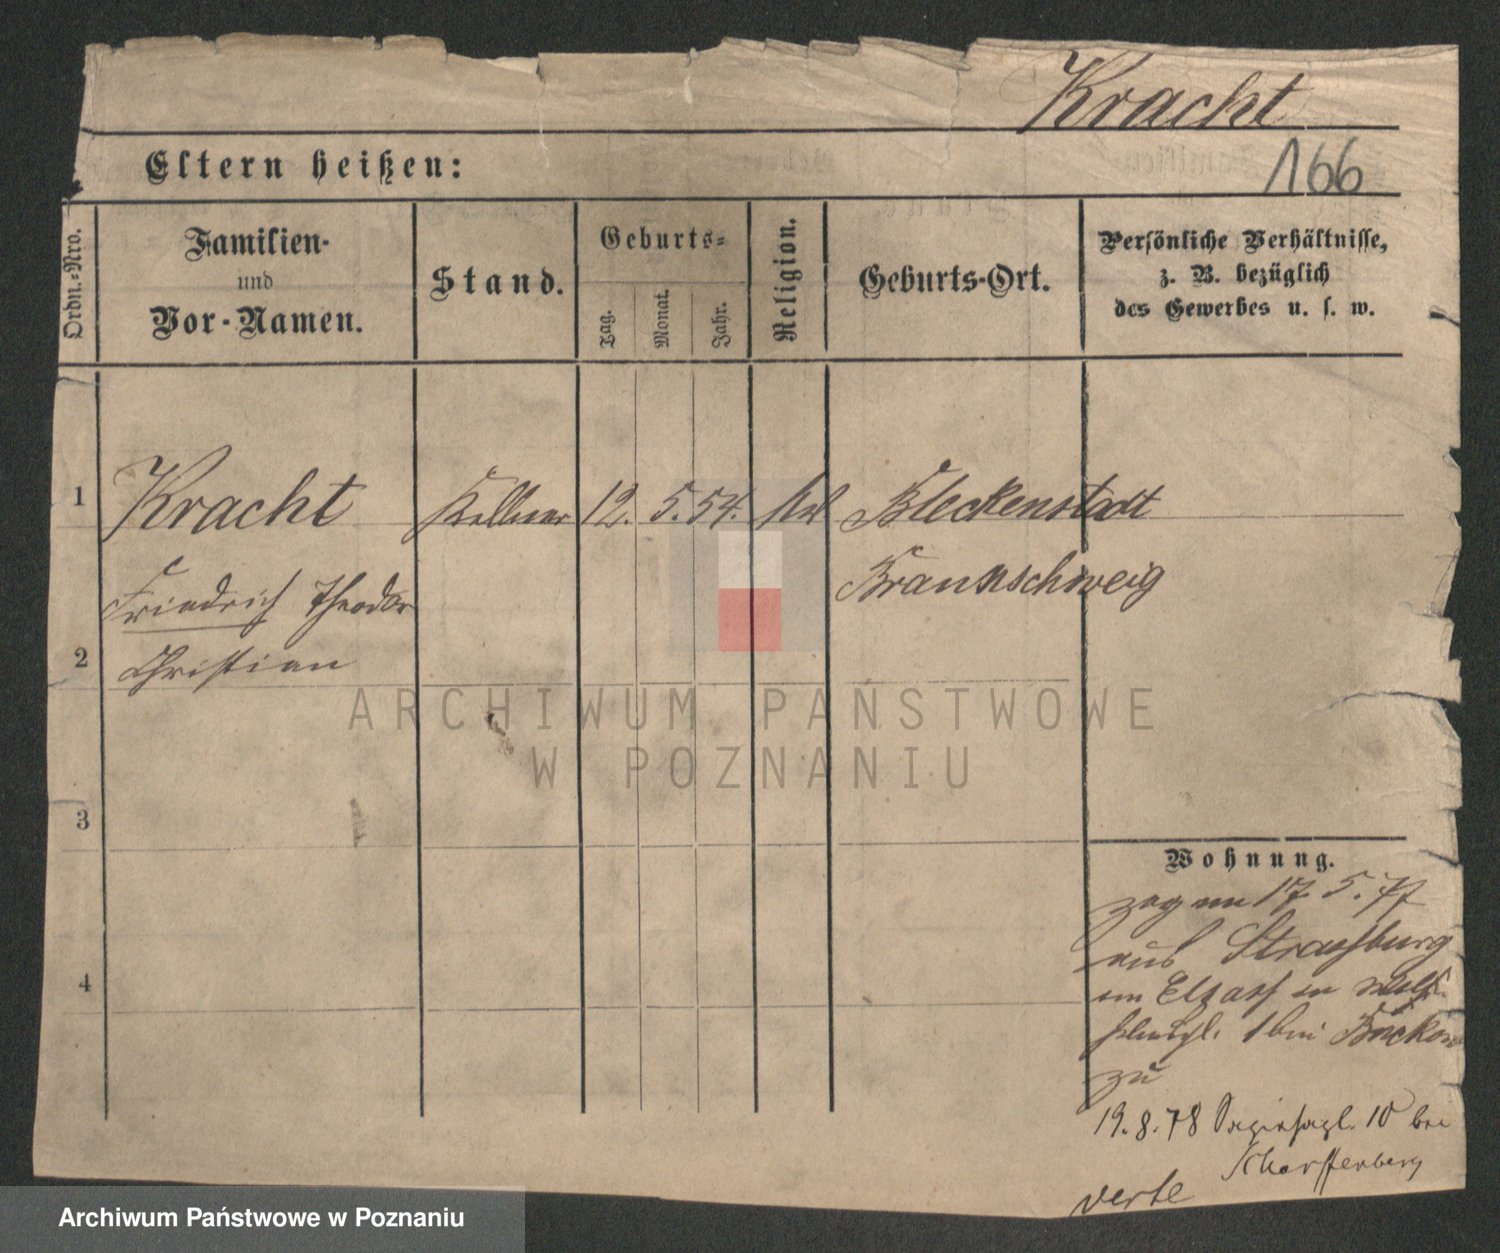 Kracht
166
Eltern heißen:
Ordn.-Nro.
Familien-
und
Vor-Namen.
Stand.
Geburts-
Tag.
Monat.
Jahr.
Religion.
Geburts-Ort.
Persönliche Verhältnisse,
z. B. bezüglich
des Gewerbes u. s. w.
1 Kracht Kellner 12. 5. 54. Bleckenstadt
Friedrich Theodor Braunschweig
2 Christian
3
4
Wohnung.
zog am 17. 5. 77
aus Strassburg
im Elsass
1 bei
zu
19. 8. 78 10 bei
Scharffenberg
verte
ARCHIWUM PAŃSTWOWE
W POZNANIU
Archiwum Państwowe w Poznaniu